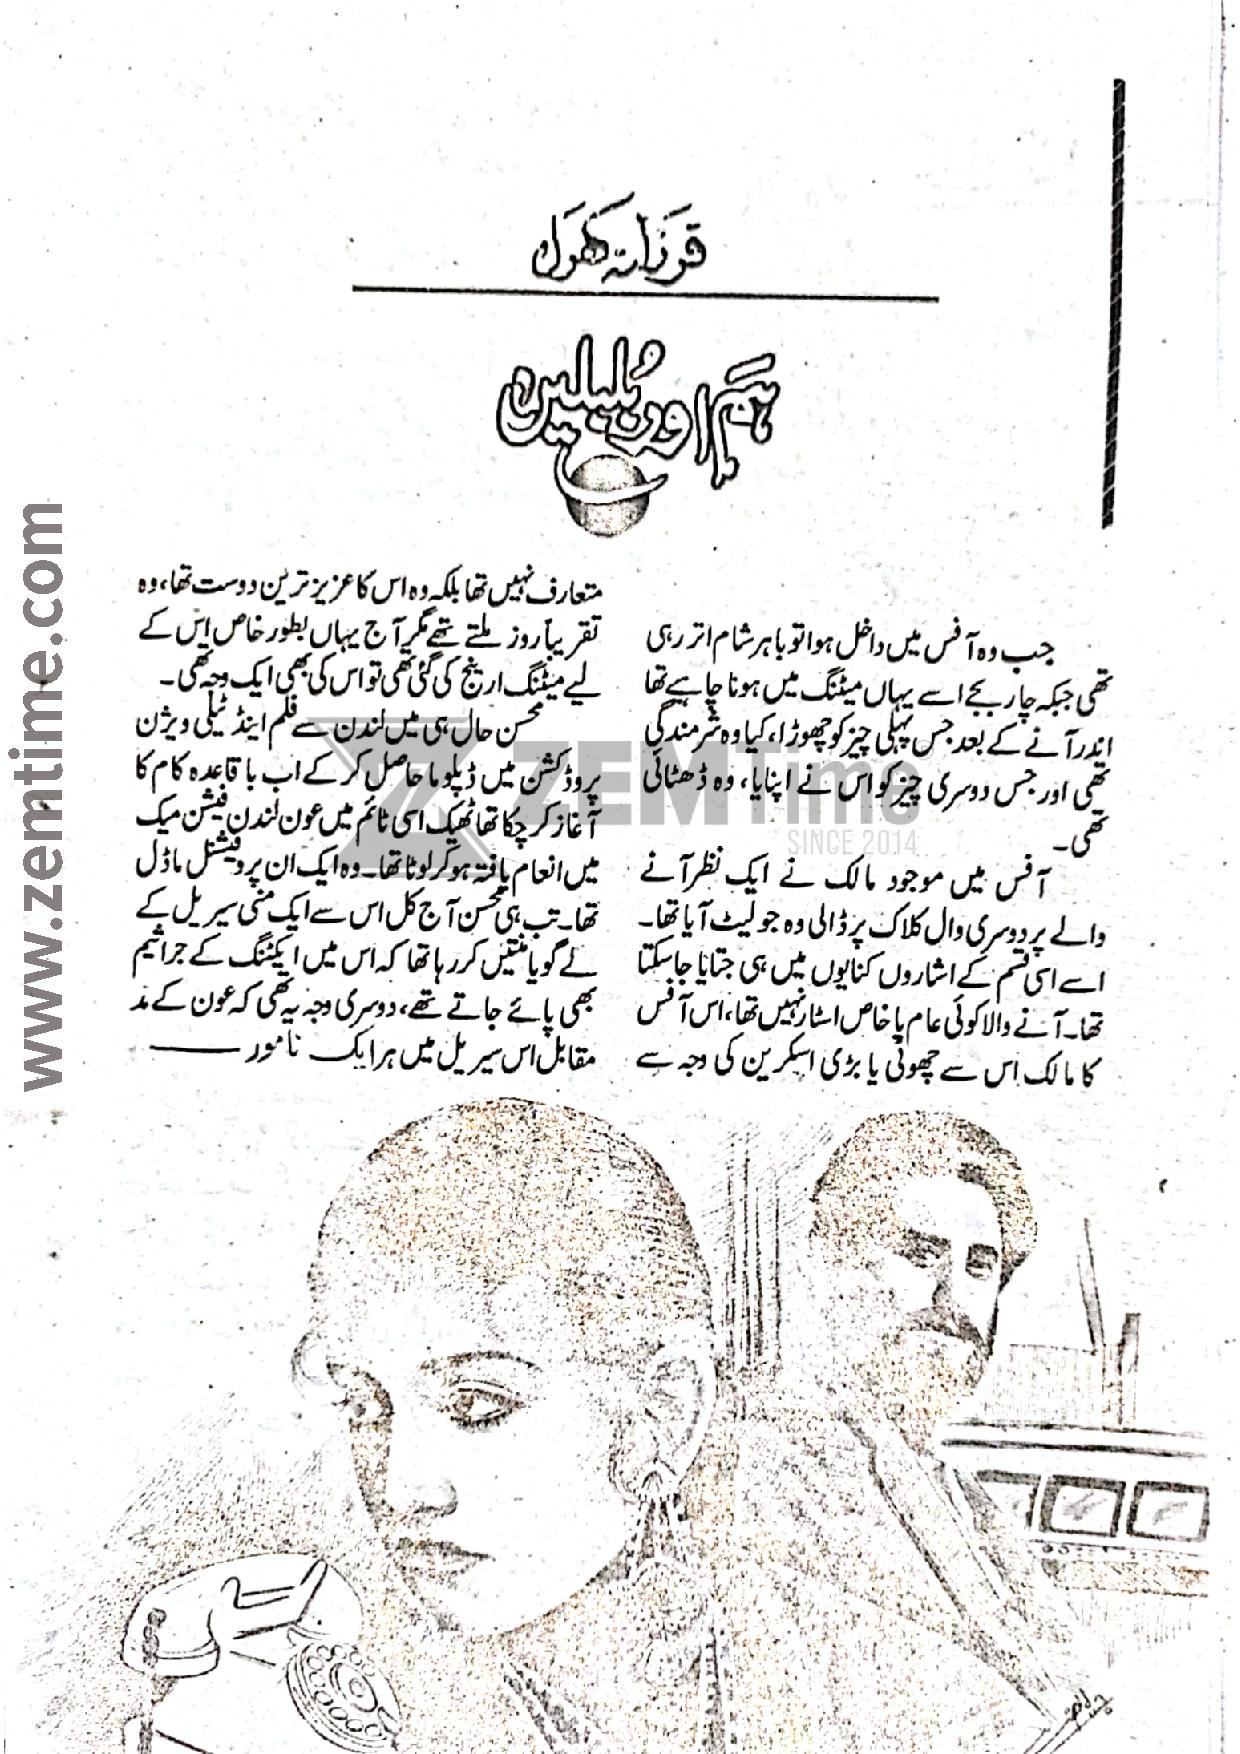 فرزانہ کھرل
ہم اور بُلبلیں
جب وہ آفس میں داخل ہوا تو باہر شام اتر رہی
تھی جبکہ چار بجے اسے یہاں میٹنگ میں ہونا چاہیے تھا
اندر آنے کے بعد جس پہلی چیز کو چھوڑا، کیا وہ شرمندگی
تھی اور جس دوسری چیز کو اس نے اپنایا، وہ ڈھٹائی
تھی۔
آفس میں موجود مالک نے ایک نظر آنے
والے پر دوسری وال کلاک پر ڈالی وہ جو لیٹ آیا تھا۔
اسے اسی قسم کے اشاروں کنایوں میں ہی جتایا جا سکتا
تھا۔ آنے والا کوئی عام یا خاص اسٹار نہیں تھا، اس آفس
کا مالک اس سے چھوٹی یا بڑی اسکرین کی وجہ سے
متعارف نہیں تھا بلکہ وہ اس کا عزیز ترین دوست تھا، وہ
تقریباً روز ملتے تھے مگر آج یہاں بطور خاص اس کے
لیے میٹنگ ارینج کی گئی تھی تو اس کی بھی ایک وجہ تھی۔
محسن حال ہی میں لندن سے فلم اینڈ ٹیلی ویژن
پروڈکشن میں ڈپلوما حاصل کر کے اب باقاعدہ کام کا
آغاز کر چکا تھا ٹھیک اسی ٹائم میں عون لندن فیشن میک
میں انعام یافتہ ہو کر لوٹا تھا۔ وہ ایک ان پروفیشنل ماڈل
تھا۔ تب ہی محسن آج کل اس سے ایک منی سیریل کے
لے گویا منتیں کر رہا تھا کہ اس میں ایکٹنگ کے جراثیم
بھی پائے جاتے تھے، دوسری وجہ یہ تھی کہ عون کے مد
مقابل اس سیریل میں ہر ایک نامور
www.zemtime.com
ZEMTime
SINCE 2014